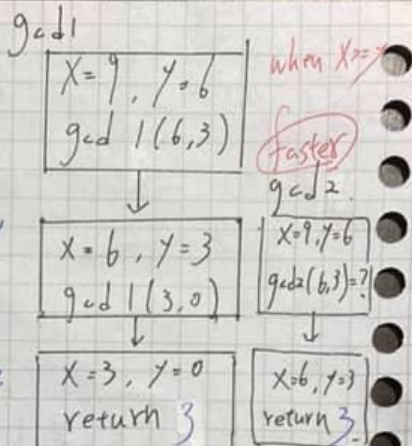 gcd1
X=9, y=6
gcd 1(6,3)
x=6, y=3
gcd 1(3,0)
X=3, y=0
return 3
when X>=y
faster
gcd2.
X=9, y=6
gcd2(6,3)=?
X=6, y=3
return 3